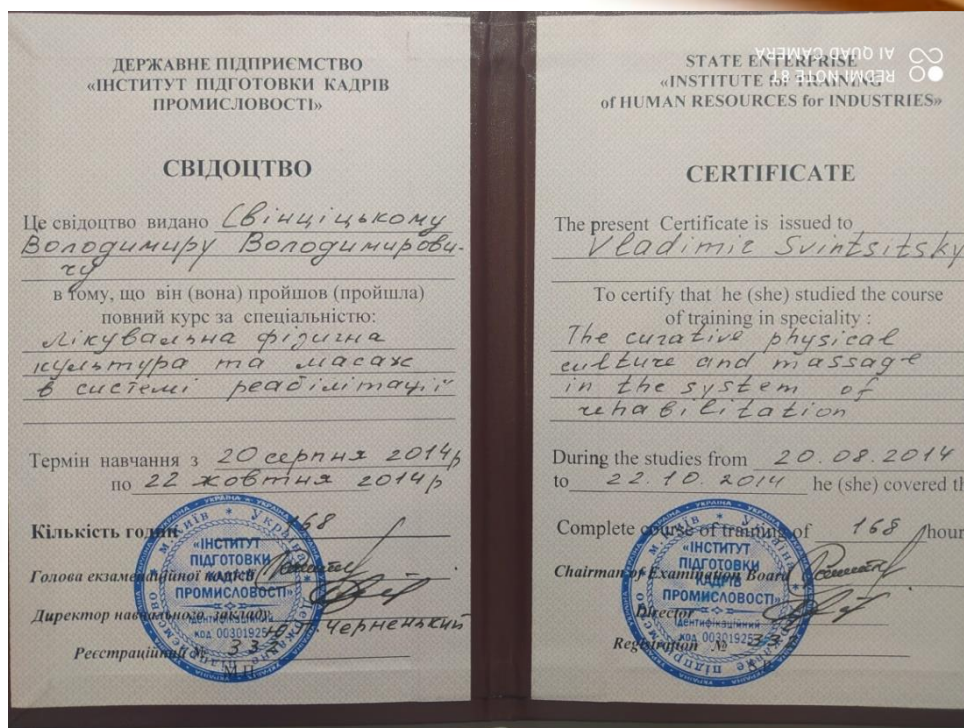 ДЕРЖАВНЕ ПІДПРИЄМСТВО
«ІНСТИТУТ ПІДГОТОВКИ КАДРІВ
ПРОМИСЛОВОСТІ»
СВІДОЦТВО
Це свідоцтво видано Свінціцькому
Володимиру Володимирови-
чу
в тому, що він (вона) пройшов (пройшла)
повний курс за спеціальністю:
Лікувальна фізична
культура та масаж
в системі реабілітації
Термін навчання з 20 серпня 2014р
по 22 жовтня 2014р
Кількість годин 168
Голова екзаменаційної комісії
Директор навчального закладу
Черненький
Реєстраційний № 333
М.П.
«ІНСТИТУТ
ПІДГОТОВКИ
КАДРІВ
ПРОМИСЛОВОСТІ»
ідентифікаційний
код 00301925
STATE ENTERPRISE
«INSTITUTE for TRAINING
of HUMAN RESOURCES for INDUSTRIES»
REDMI NOTE 8T
AI QUAD CAMERA
CERTIFICATE
The present Certificate is issued to
Vladimir Svintsitsky
To certify that he (she) studied the course
of training in speciality :
The curative physical
culture and massage
in the system of
rehabilitation
During the studies from 20.08.2014
to 22.10.2014 he (she) covered th
Complete course of training of 168 hour
Chairman of Examination Board
Director
Registration № 333
«ІНСТИТУТ
ПІДГОТОВКИ
КАДРІВ
ПРОМИСЛОВОСТІ»
ідентифікаційний
код 00301925